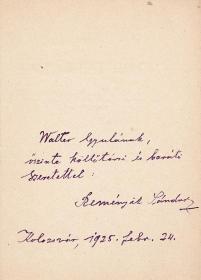 Walter Gyulának,
őszinte költőtársi és baráti
szeretettel:
Reményik Sándor
Kolozsvár, 1925. febr. 24.